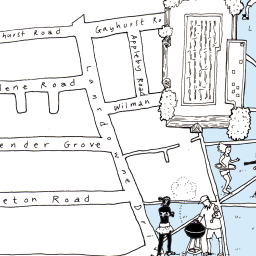 hurst Road
Gayhurst Ro
Appleby Road
lene Road
Lansdowne Dr
Wilman
ender Grove
eton Road
L